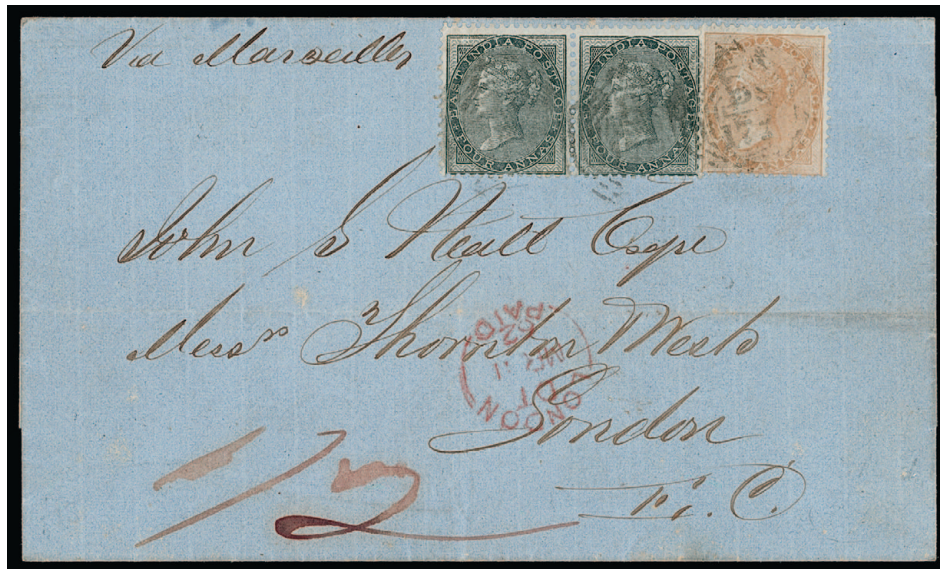 Via Marseilles
EAST INDIA POSTAGE
FOUR ANNAS
EAST INDIA POSTAGE
FOUR ANNAS
John S Neall Esqre
Messrs Thornton West &
London
E. C.
LONDON
PAID
1/2